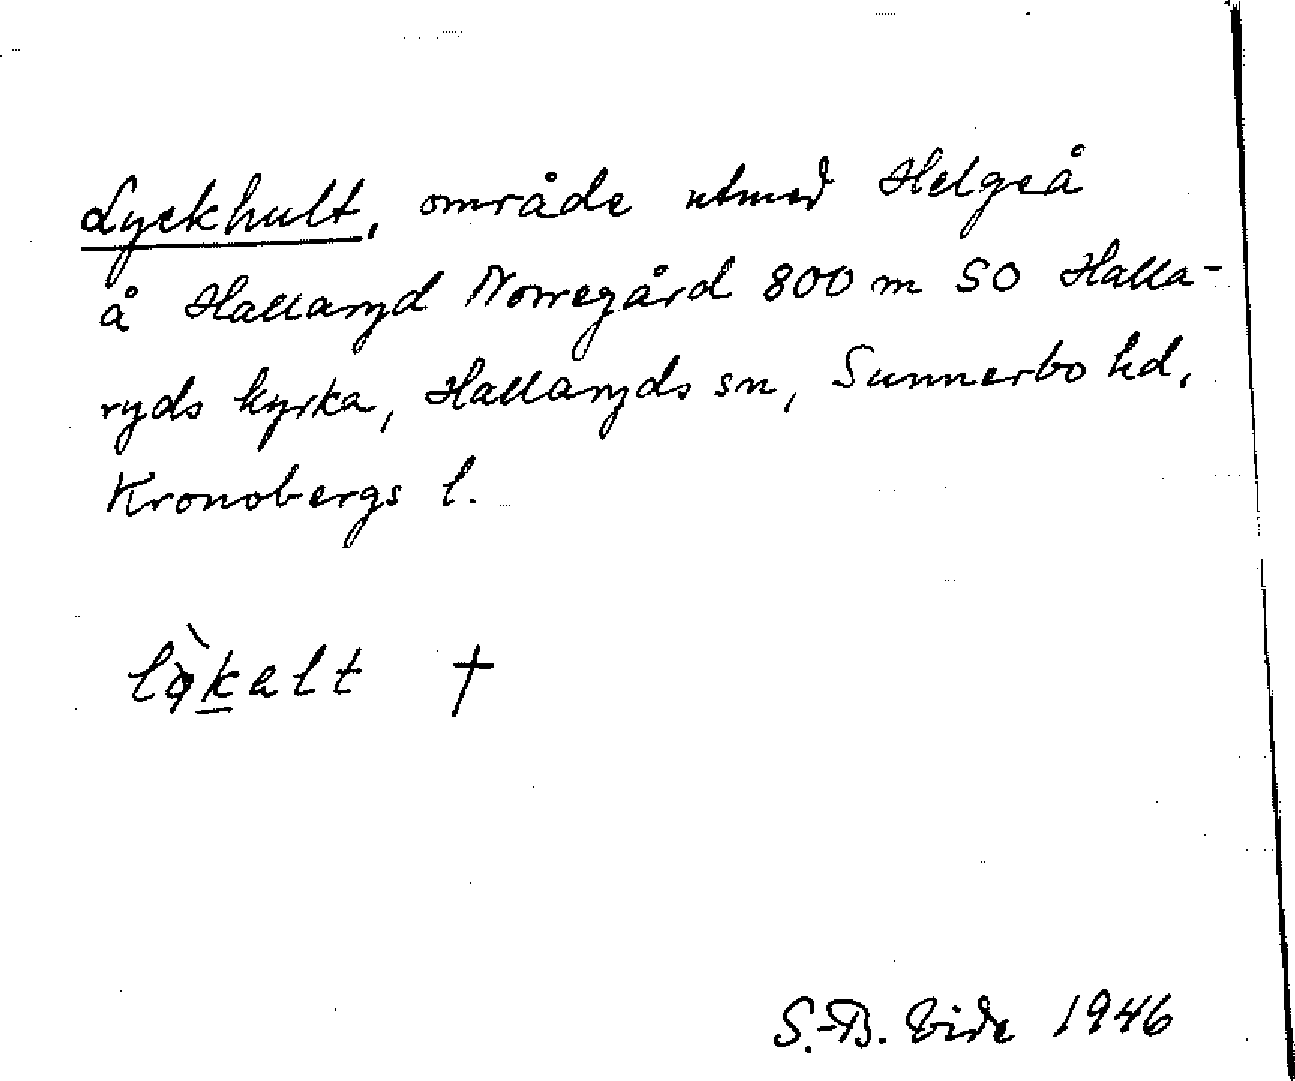 Lyckhult, område utmed Helgeå
å Hallaryd Norregård 800 m SO Halla-
ryds kyrka, Hallaryds sn, Sunnerbo hd,
Kronobergs l.
lø̀kalt †
S.-B. Vide 1946